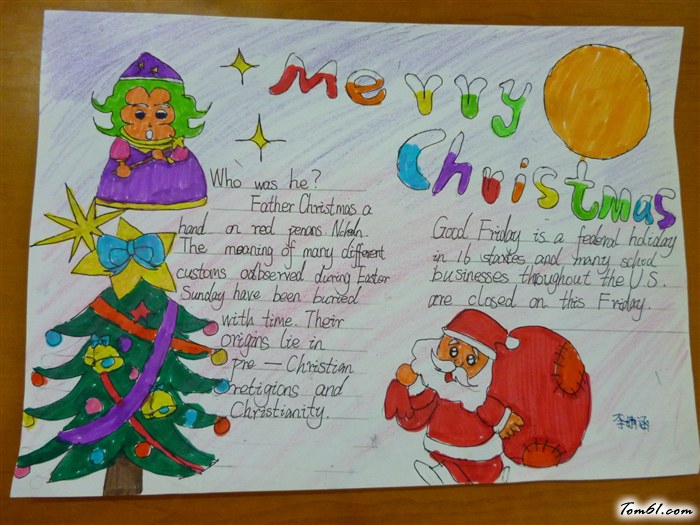 Merry
Christmas
Who was he?
Father Christmas a
hand on red penans
The meaning of many different
customs oadbserved during Easter
Sunday have been buried
with time. Their
origins lie in
pre — Christian
religions and
Christianity.
Good Friday is a federal holiday
in 16 staates and many school
businesses thoughout the U.S.
are closed on this Friday.
李涵
Tom61.com